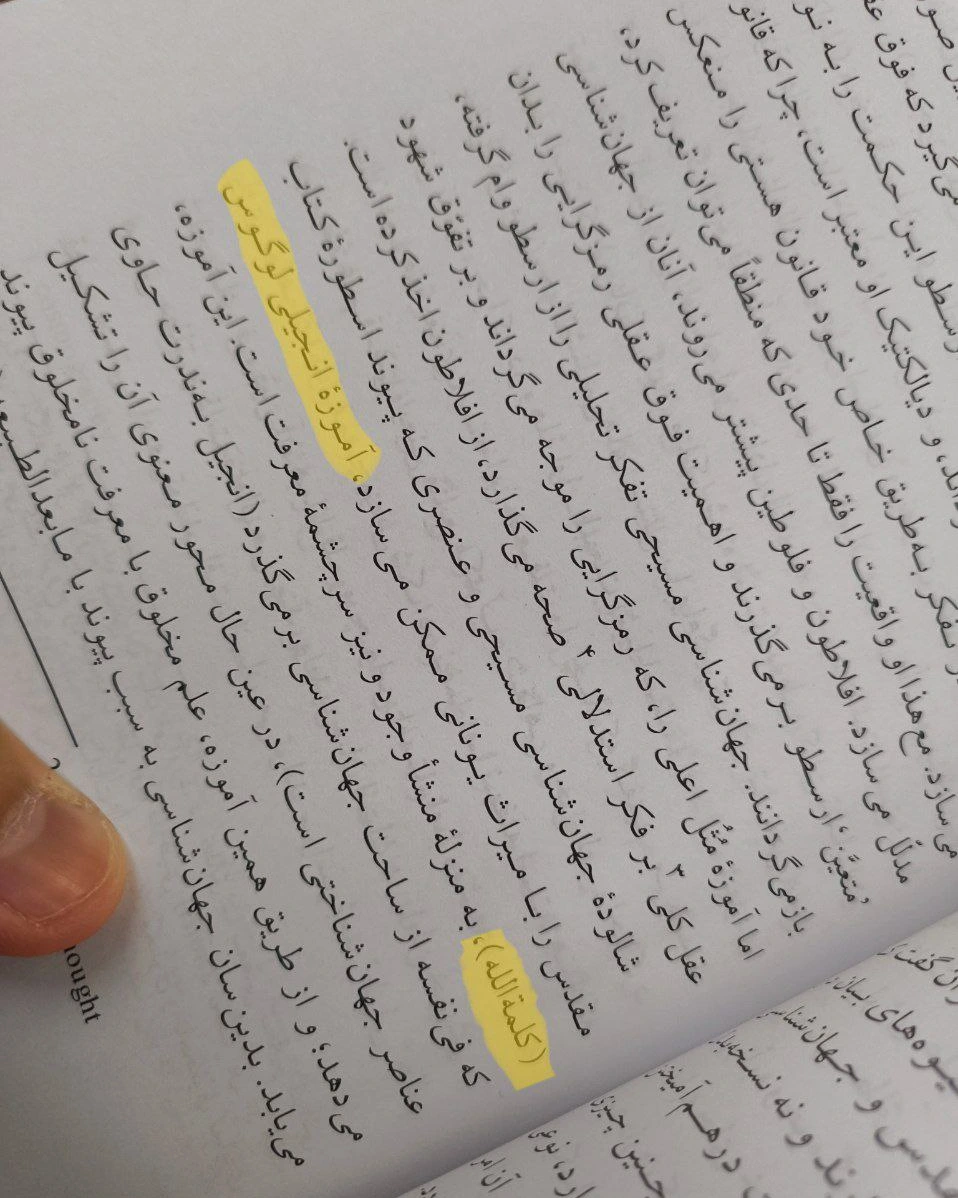 می‌گیرد که فوق
این حکمت را به
و دیالکتیک او معتبر است، چرا که
تفکر به‌طریق خاص خود قانون هستی را منعکس
می‌سازد. مع‌هذا او واقعیت را فقط تا حدی که منطقاً می‌توان تعریف کرد،
مدلّل می‌سازد. افلاطون و فلوطین پیشتر می‌روند، آنان از جهان‌شناسی
متعیّنِ ارسطو بر می‌گذرند و اهمیت فوق عقلی رمزگرایی را بدان
بازمی‌گردانند. جهان‌شناسی مسیحی تفکر تحلیلی را از ارسطو وام گرفته،
اما آموزهٔ مُثُل اعلی را، که رمزگرایی را موجه می‌گرداند و بر تفوّق شهود
عقل کلی۳ بر فکر استدلالی۴ صحه می‌گذارد، از افلاطون اخذ کرده است.
شالودهٔ جهان‌شناسی مسیحی و عنصری که پیوند اسطورهٔ کتاب
مقدس را با میراث یونانی ممکن می‌سازد، آموزهٔ انجیلی لوگوس
(کلمةالله)، به منزلهٔ منشأ وجود و نیز سرچشمهٔ معرفت است. این آموزه،
که فی‌نفسه از ساحت جهان‌شناسی برمی‌گذرد (انجیل به‌ندرت حاوی
عناصر جهان‌شناختی است)، در عین حال محور معنوی آن را تشکیل
می‌دهد؛ و از طریق همین آموزه، علم مخلوق با معرفت نامخلوق پیوند
می‌یابد. بدین‌سان جهان‌شناسی به سبب پیوند با
hought